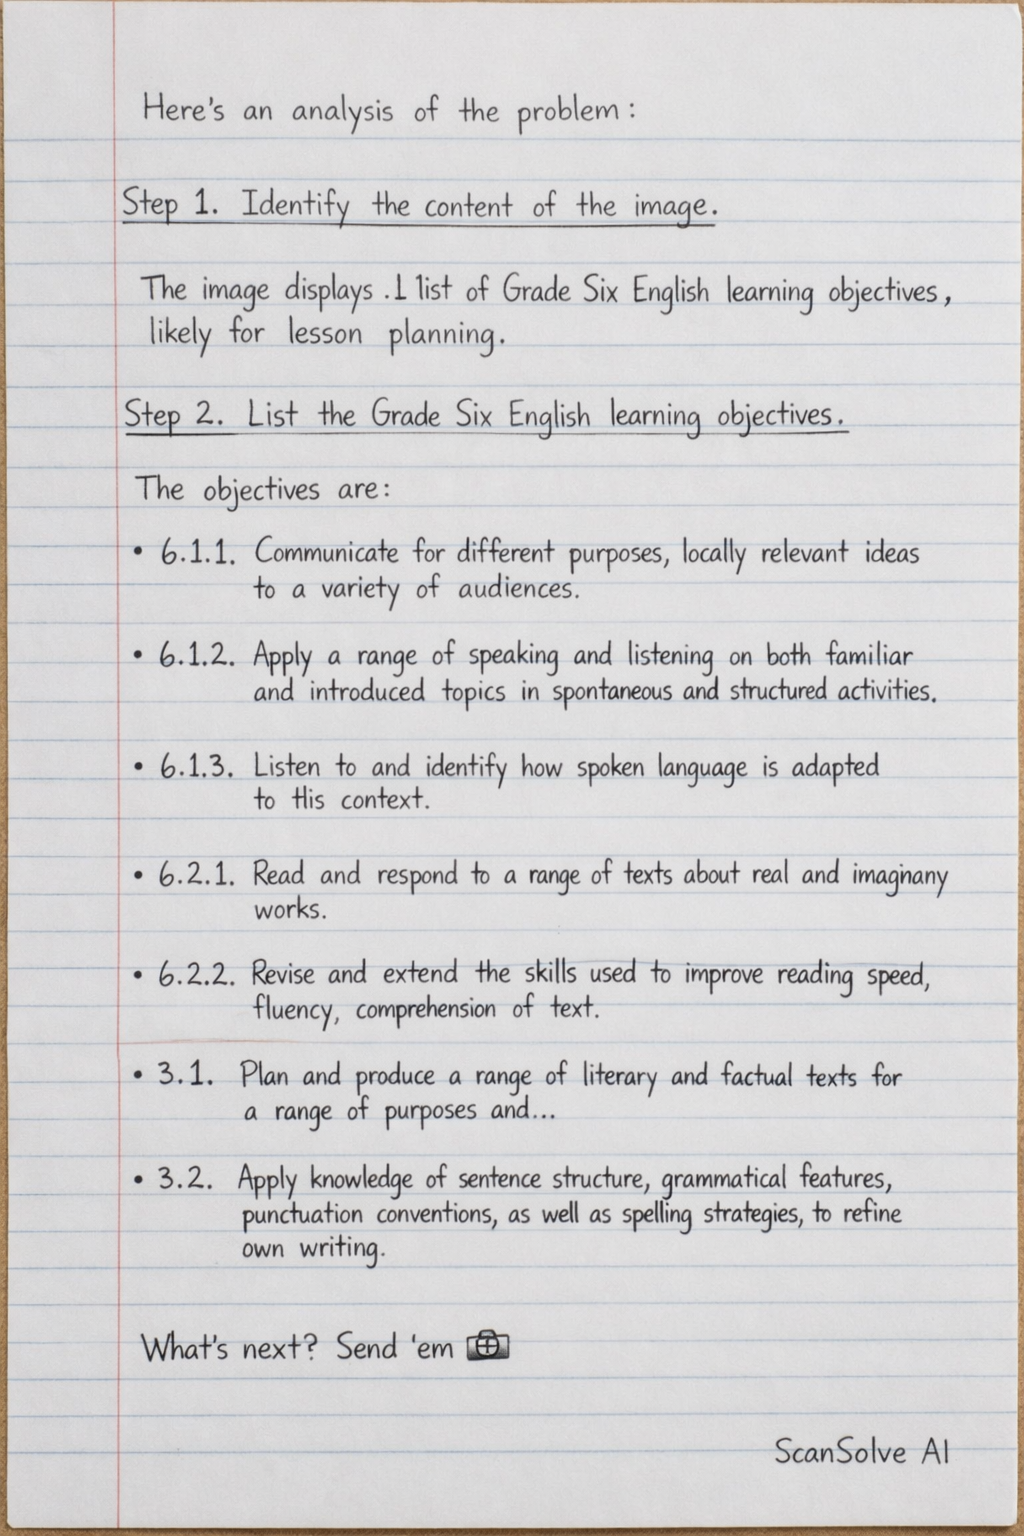 Here's an analysis of the problem:
Step 1. Identify the content of the image.
The image displays .1 list of Grade Six English learning objectives,
likely for lesson planning.
Step 2. List the Grade Six English learning objectives.
The objectives are:
• 6.1.1. Communicate for different purposes, locally relevant ideas
to a variety of audiences.
• 6.1.2. Apply a range of speaking and listening on both familiar
and introduced topics in spontaneous and structured activities.
• 6.1.3. Listen to and identify how spoken language is adapted
to this context.
• 6.2.1. Read and respond to a range of texts about real and imagnany
works.
• 6.2.2. Revise and extend the skills used to improve reading speed,
fluency, comprehension of text.
• 3.1. Plan and produce a range of literary and factual texts for
a range of purposes and...
• 3.2. Apply knowledge of sentence structure, grammatical features,
punctuation conventions, as well as spelling strategies, to refine
own writing.
What's next? Send 'em
ScanSolve AI